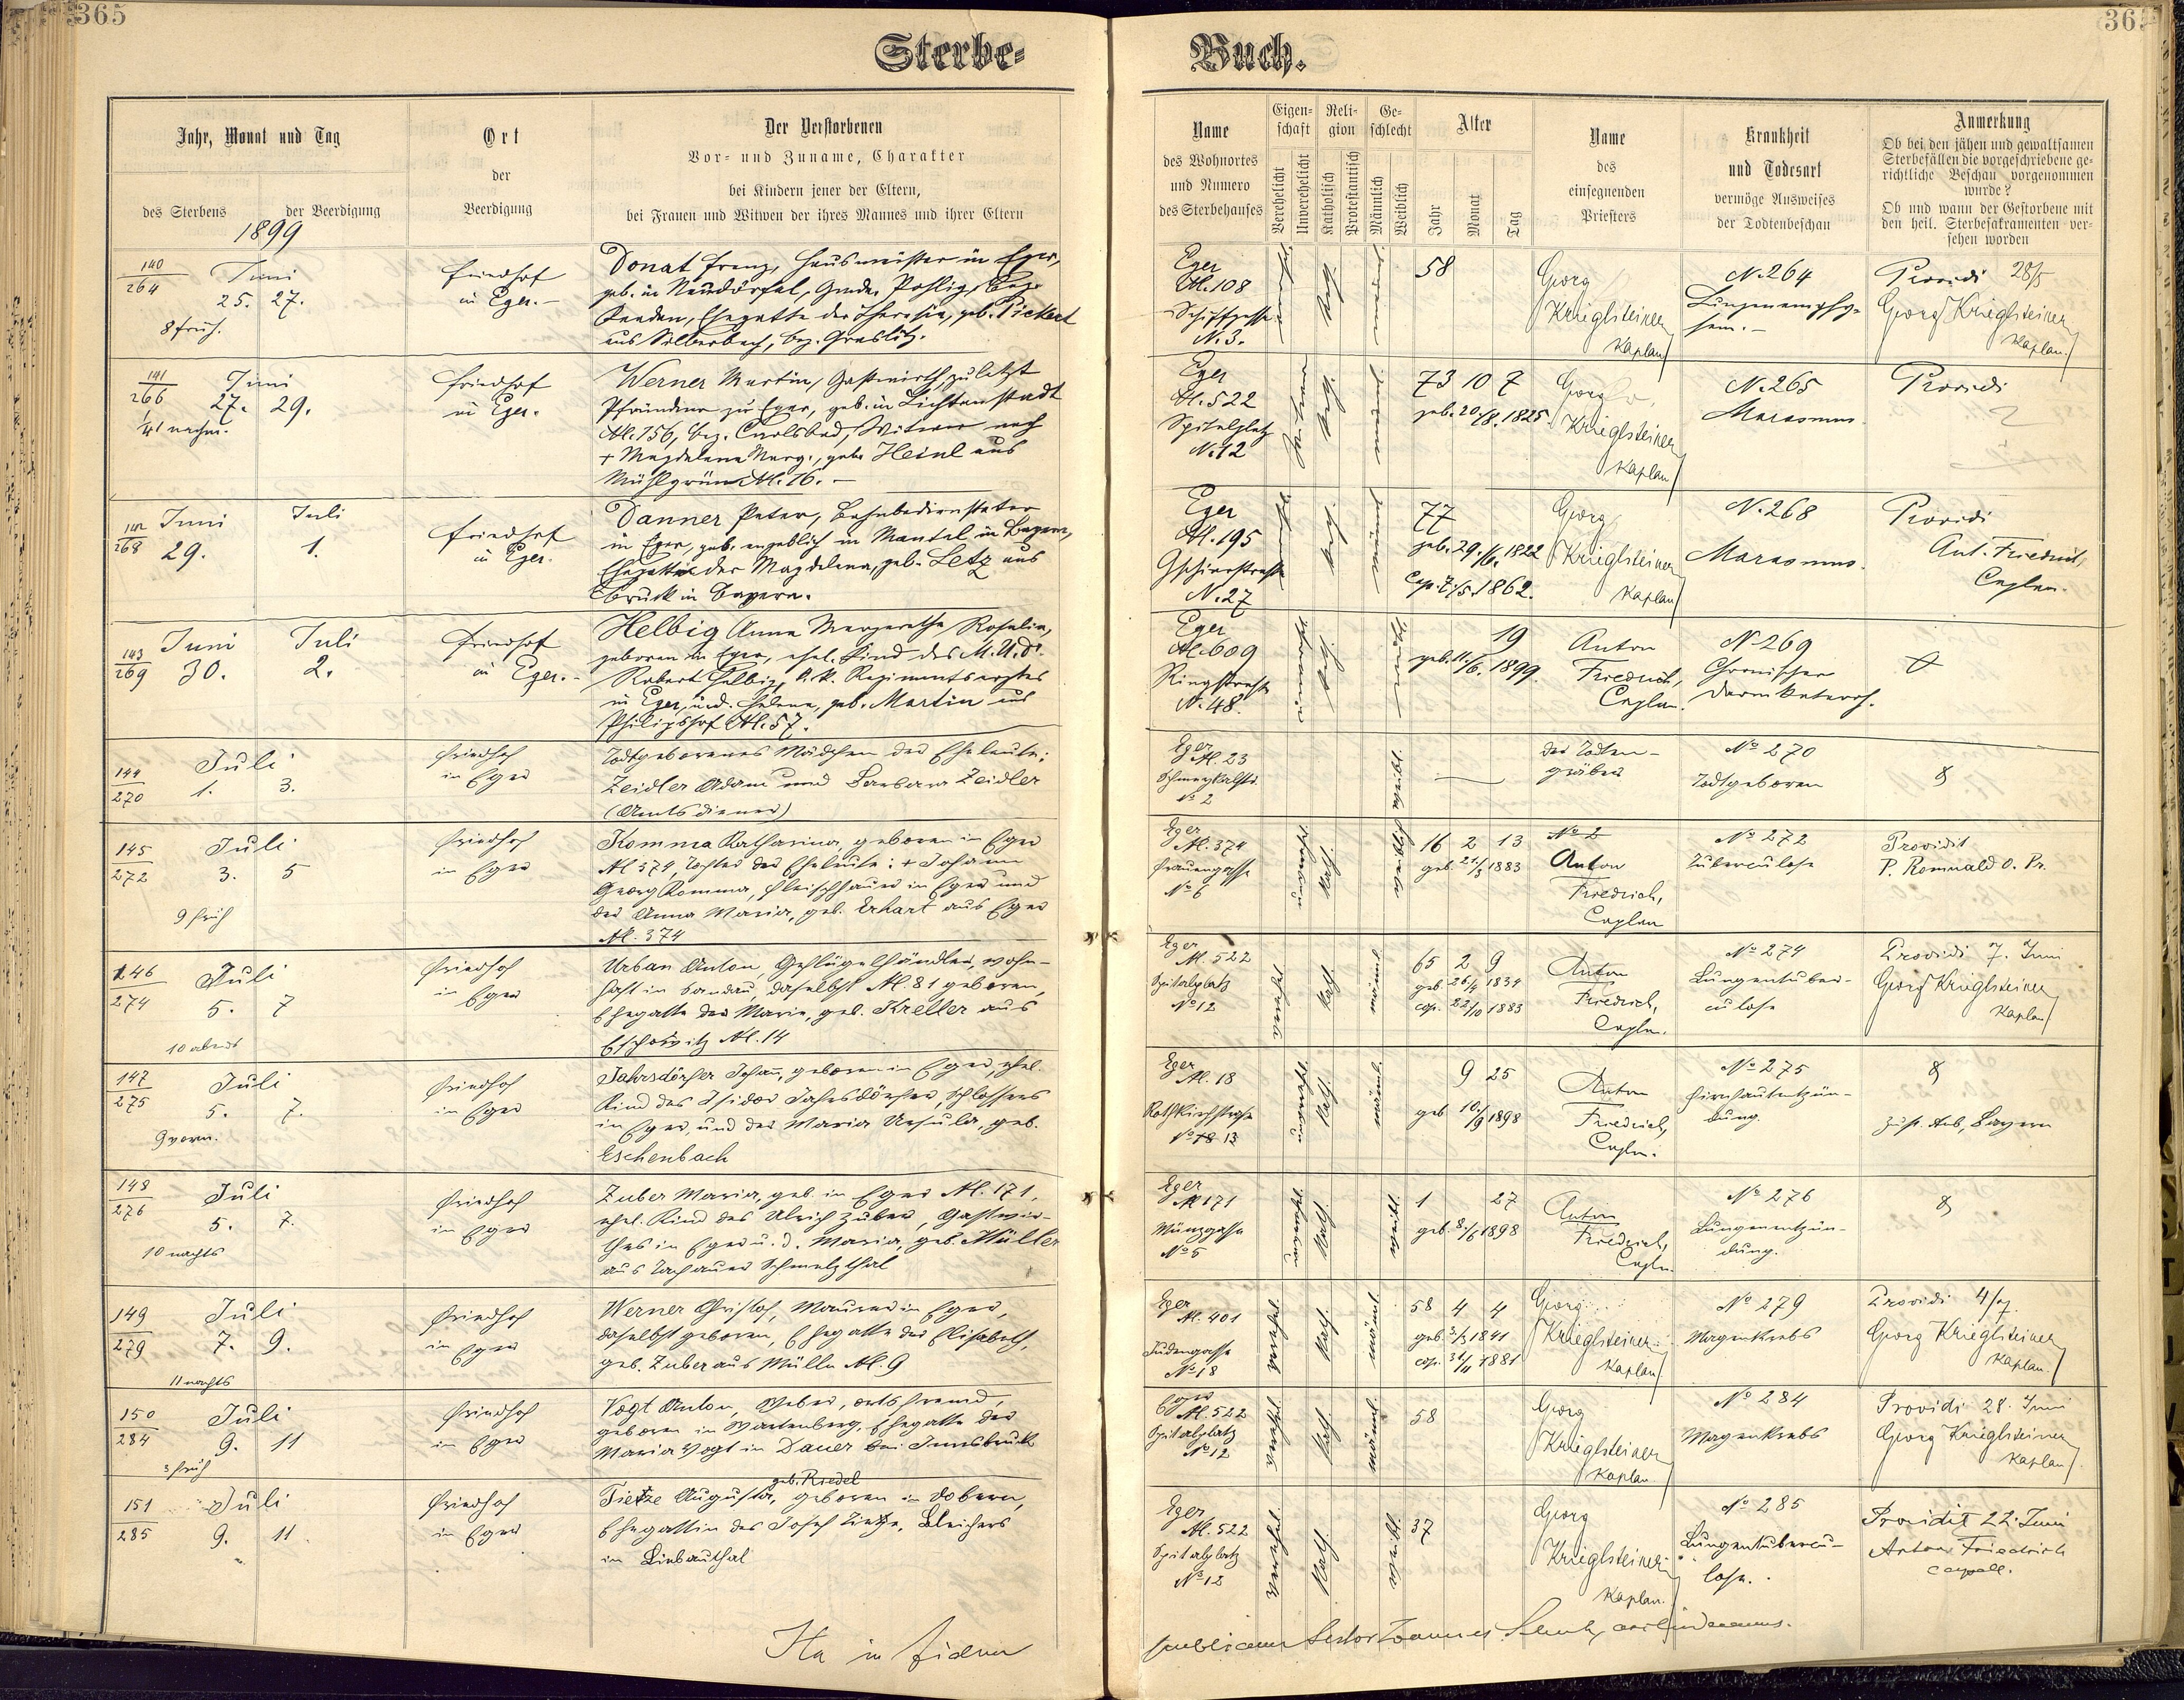 365
365
Sterbe-
Buch.
Jahr, Monat und Tag
des Sterbens
der Beerdigung
1899
Ort
der
Beerdigung
Der Verstorbenen
Vor- und Zuname, Charakter
bei Kindern jener der Eltern,
bei Frauen und Witwen der ihres Mannes und ihrer Eltern
Name
des Wohnortes
und Numero
des Sterbehauses
Eigen-
schaft
Verehelicht
Unverehelicht
Reli-
gion
Katholisch
Protestantisch
Ge-
schlecht
Männlich
Weiblich
Alter
Jahr
Monat
Tag
Name
des
einsegnenden
Priesters
Krankheit
und Todesart
vermöge Ausweises
der Todtenbeschau
Anmerkung
Ob bei den jähen und gewaltsamen
Sterbefällen die vorgeschriebene ge-
richtliche Beschau vorgenommen
wurde?
Ob und wann der Gestorbene mit
den heil. Sterbesakramenten ver-
sehen worden
140
264
Juni
25. 27.
8 früh.
Friedhof
in Eger.-
Donat Franz, Hausmeister in Eger,
geb. in Neudörfel, Gmde. Pohlig, Bez.
Kaaden, Ehegatte der Theresia, geb. Pickert
aus Silberbach, bez. Graslitz.
Eger
N. 108
Schiffgasse
N. 3.
kath.
58
Georg
Krieglsteiner
Kaplan
N. 264
Lungenemphy-
sem.-
Providi 28/5
Georg Krieglsteiner
Kaplan.
141
266
Juni
27. 29.
nachm.
Friedhof
in Eger.
Werner Martin, Gastwirth, zuletzt
Pfründner zu Eger, geb. in Lichtenstadt
N. 156, bez. Carlsbad, Witwer nach
+ Magdalena Marg., geb. Heinl aus
Mühlgrün N. 16.-
Eger
N. 522
Spitalplatz
N. 12
kath.
73 10 7
geb. 20/8. 1825
Georg
Krieglsteiner
Kaplan
N. 265
Marasmus
Providi
142
268
Juni Juli
29. 1.
Friedhof
in Eger.
Danner Peter, Bahnbediensteter
in Eger, geb. angeblich in Mantel in Bayern,
Ehegatte der Magdalena, geb. Letz aus
Bruck in Bayern.
Eger
N. 195
N. 27
kath.
77
geb. 29./6. 1822
Cop. 7./5. 1862.
Georg
Krieglsteiner
Kaplan
N. 268
Marasmus.
Providi
Ant. Friedrich,
Caplan.
143
269
Juni Juli
30. 2.
Friedhof
in Eger.-
Helbig Anna Margaretha Rosalia,
geboren in Eger, ehel. Kind des M.U.Dr.
Robert Helbig, k.k. Regimentsarztes
in Eger, und Helena, geb. Martin aus
Philipshof N. 57.
Eger
N. 609
Ringstrasse
N. 48.
kath.
19
geb. 11./6. 1899.
Anton
Friedrich,
Caplan.
N. 269
Chronischer
Darmkatarrh.
144
270
Juli
1. 3.
Friedhof
in Eger
Todtgeborenes Mädchen der Eheleute:
Zeidler Adam und Barbara Zeidler
(Amtsdiener)
Eger
N. 23
Schmeykalstr.
No 2
weibl.
der Todten-
gräber
No 270
Todtgeboren
145
272
Juli
3. 5
9 früh
Friedhof
in Eger
Komma Katharina, geboren in Eger
N 374, Tochter der Eheleute: + Johann
Georg Komma, Fleischhauer in Eger und
der Anna Maria, geb. Erhart aus Eger
N. 374
Eger
N. 374
Frauengasse
No 6
kath.
weiblich
16 2 13
geb. 21/3 1883
No 2
Anton
Friedrich,
Caplan
No 272
Tuberculose
Providit
P. Romuald O. Pr.
146
274
Juli
5. 7
10 abends
Friedhof
in Eger
Urban Anton, Geflügelhändler, wohn-
haft in Sandau, daselbst N. 81 geboren,
Ehegatte der Marie, geb. Kreller aus
N. 14
Eger
N. 522
Spitalplatz
No 12
verehel.
kath.
männl.
65 2 9
geb. 26/4 1834
cop. 22/10 1883
Anton
Friedrich,
Caplan.
No 274
Lungentuber-
culose
Providi 7. Juni
Georg Krieglsteiner
Kaplan
147
275
Juli
5. 7.
9 vorm.
Friedhof
in Eger
Jahrsdörfer Johann, geboren in Eger, ehel.
Kind des Isidor Jahrsdörfer, Schlossers
in Eger, und der Maria Ursula, geb.
Eschenbach
Eger
N. 18
Rothkirchstrasse
No 18 13
kath.
männl.
9 25
geb. 10./9 1898
Anton
Friedrich,
Caplan.
No 275
Hirnhautentzün-
dung.
zust. Aub, Bayern
148
276
Juli
5. 7.
10 nachts
Friedhof
in Eger
Zuber Maria, geb. in Eger N. 171,
ehel. Kind des Ulrich Zuber, Gastwir-
thes in Eger u. d. Maria, geb. Müller
aus Tachauer Schmelzthal
Eger
N 171
Münzgasse
No 5
kath.
weibl.
1 27
geb. 8./6 1898
Anton
Friedrich,
Caplan
No 276
Lungenentzün-
dung.
149
279
Juli
7. 9.
11 nachts
Friedhof
in Eger
Werner Christof, Maurer in Eger,
daselbst geboren, Ehegatte der Elisabeth,
geb. Zuber aus Mülln N. 9
Eger
N. 401
Judengasse
No 18
verehel.
kath.
männl.
58 4 4
geb. 3/3 1841
cop. 1881
Georg
Krieglsteiner
Kaplan
No 279
Magenkrebs
Providi 4/7.
Georg Krieglsteiner
Kaplan.
150
284
Juli
9. 11
3 früh
Friedhof
in Eger
Vogt Anton, Weber, ortsfremd,
geboren in Wartenberg, Ehegatte der
Maria Vogt in Dauer bei Innsbruck
Eger
N. 522
Spitalplatz
No 12
verehel.
kath.
männl.
58
Georg
Krieglsteiner
Kaplan.
No 284
Magenkrebs
Providi 28. Juni
Georg Krieglsteiner
Kaplan
151
285
Juli
9. 11.
Friedhof
in Eger
geb. Riedel
Tietze Augusta, geboren in Dobern,
Ehegattin des Josef Tietze, Bleichers
in Liebauthal
Eger
N. 522
Spitalplatz
No 12
verehel.
kath.
weibl.
37
Georg
Krieglsteiner
Kaplan.
No 285
Lungentubercu-
lose.
Providit 22. Juni
Anton Friedrich
Ita in fidem
publicam